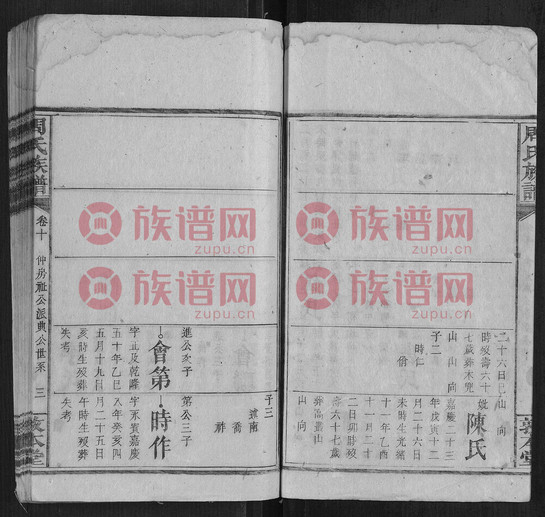 周氏族譜
二十六日巳
時歿壽六十
七歲葬木兜
山 山 向
子二
時仁
時信
山 向
妣陳氏
嘉慶二十三
年戊寅十二
月二十六日
未時生光緒
十一年乙酉
十一月二十
二日卯時歿
壽六十七歲
山 向
子三
南
喬
進公亥子
會第
字正及乾隆
五十年乙巳
五月十九日
亥時生歿葬
失考
第公三子
時作
字永寅嘉慶
八年癸亥四
月二十五日
午時生歿葬
失考
周氏族譜
卷十
仲房祖公派典公世系
三
敦本堂
族谱网
zupu.cn
族谱网
zupu.cn
族谱网
zupu.cn
族谱网
zupu.cn